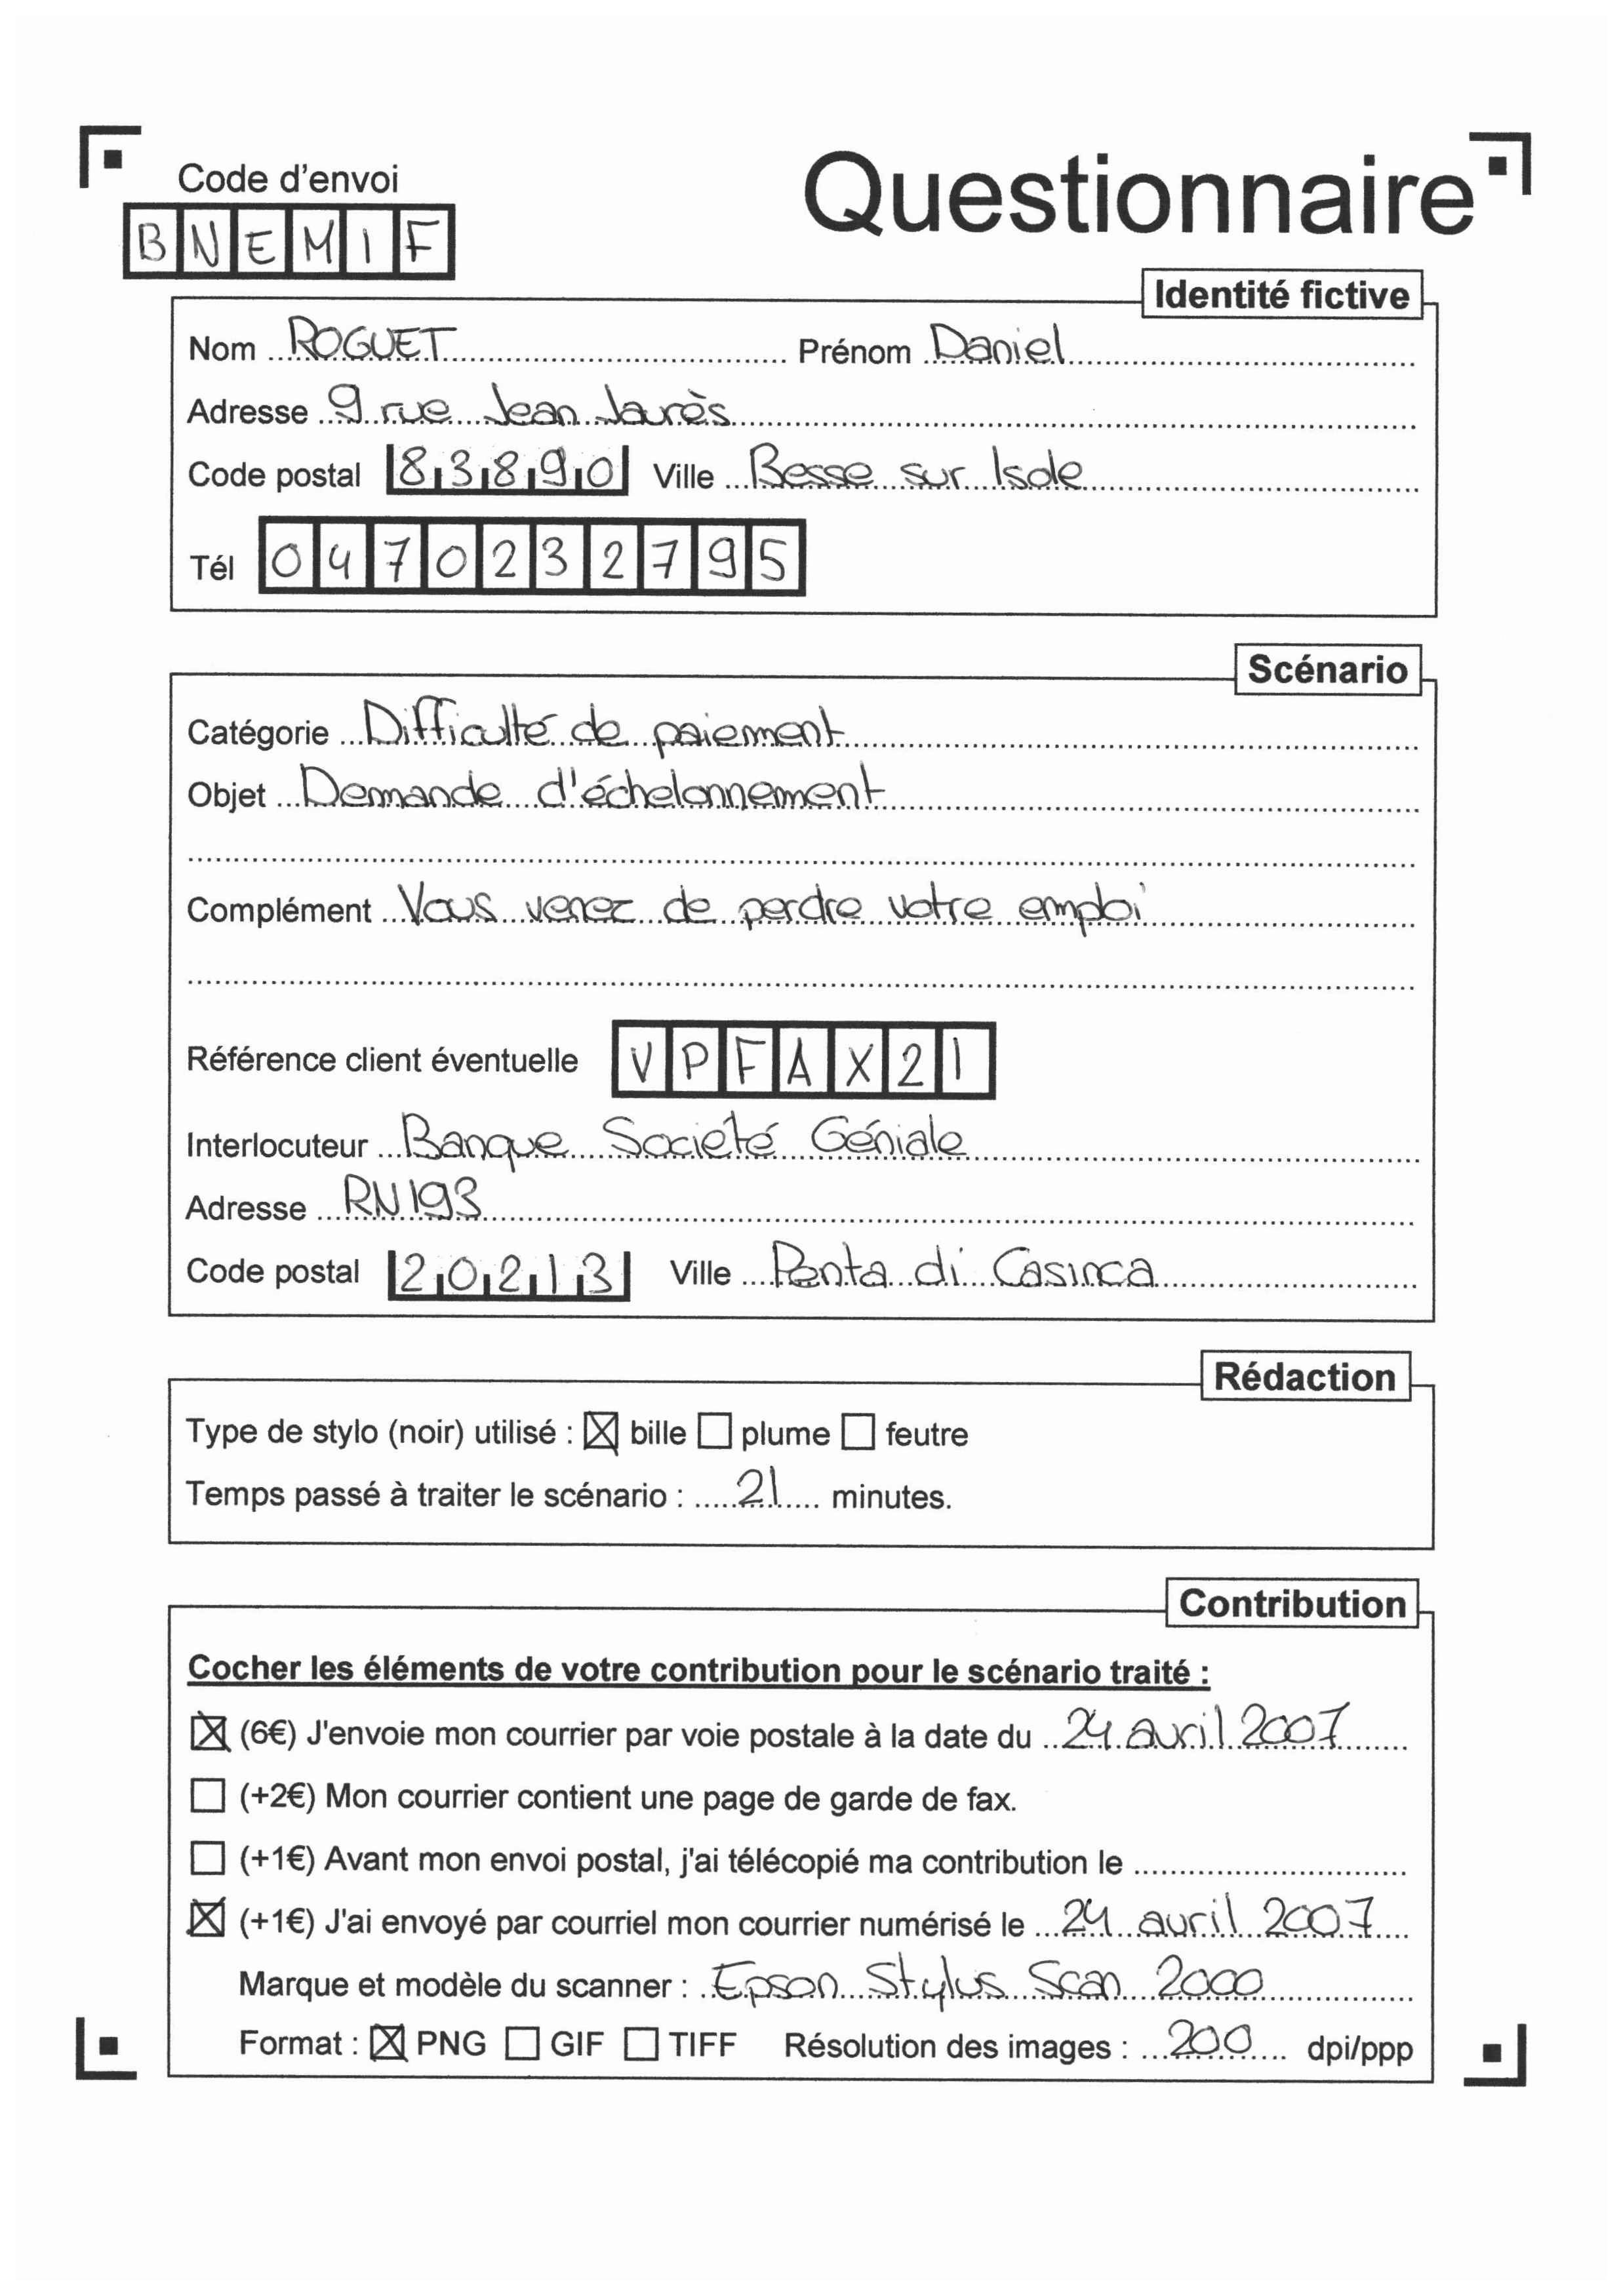 Code d'envoi
Questionnaire
BNEMIF
Identité fictive
Nom ROGUET Prénom Daniel
Adresse 9 rue Jean Jaurès
Code postal 83890 Ville Besse sur Isole
Tél 0470232795
Scénario
Catégorie Difficulté de paiement
Objet Demande d'échelonnement
Complément Vous venez de perdre votre emploi
Référence client éventuelle VPFAX21
Interlocuteur Banque Société Géniale
Adresse RN193
Code postal 20213 Ville Penta di Casinca
Rédaction
Type de stylo (noir) utilisé : ☒ bille ☐ plume ☐ feutre
Temps passé à traiter le scénario : 21 minutes.
Contribution
Cocher les éléments de votre contribution pour le scénario traité :
☒ (6€) J'envoie mon courrier par voie postale à la date du 24 avril 2007
☐ (+2€) Mon courrier contient une page de garde de fax.
☐ (+1€) Avant mon envoi postal, j'ai télécopié ma contribution le
☒ (+1€) J'ai envoyé par courriel mon courrier numérisé le 24 avril 2007
Marque et modèle du scanner : Epson Stylus Scan 2000
Format : ☒ PNG ☐ GIF ☐ TIFF Résolution des images : 200 dpi/ppp